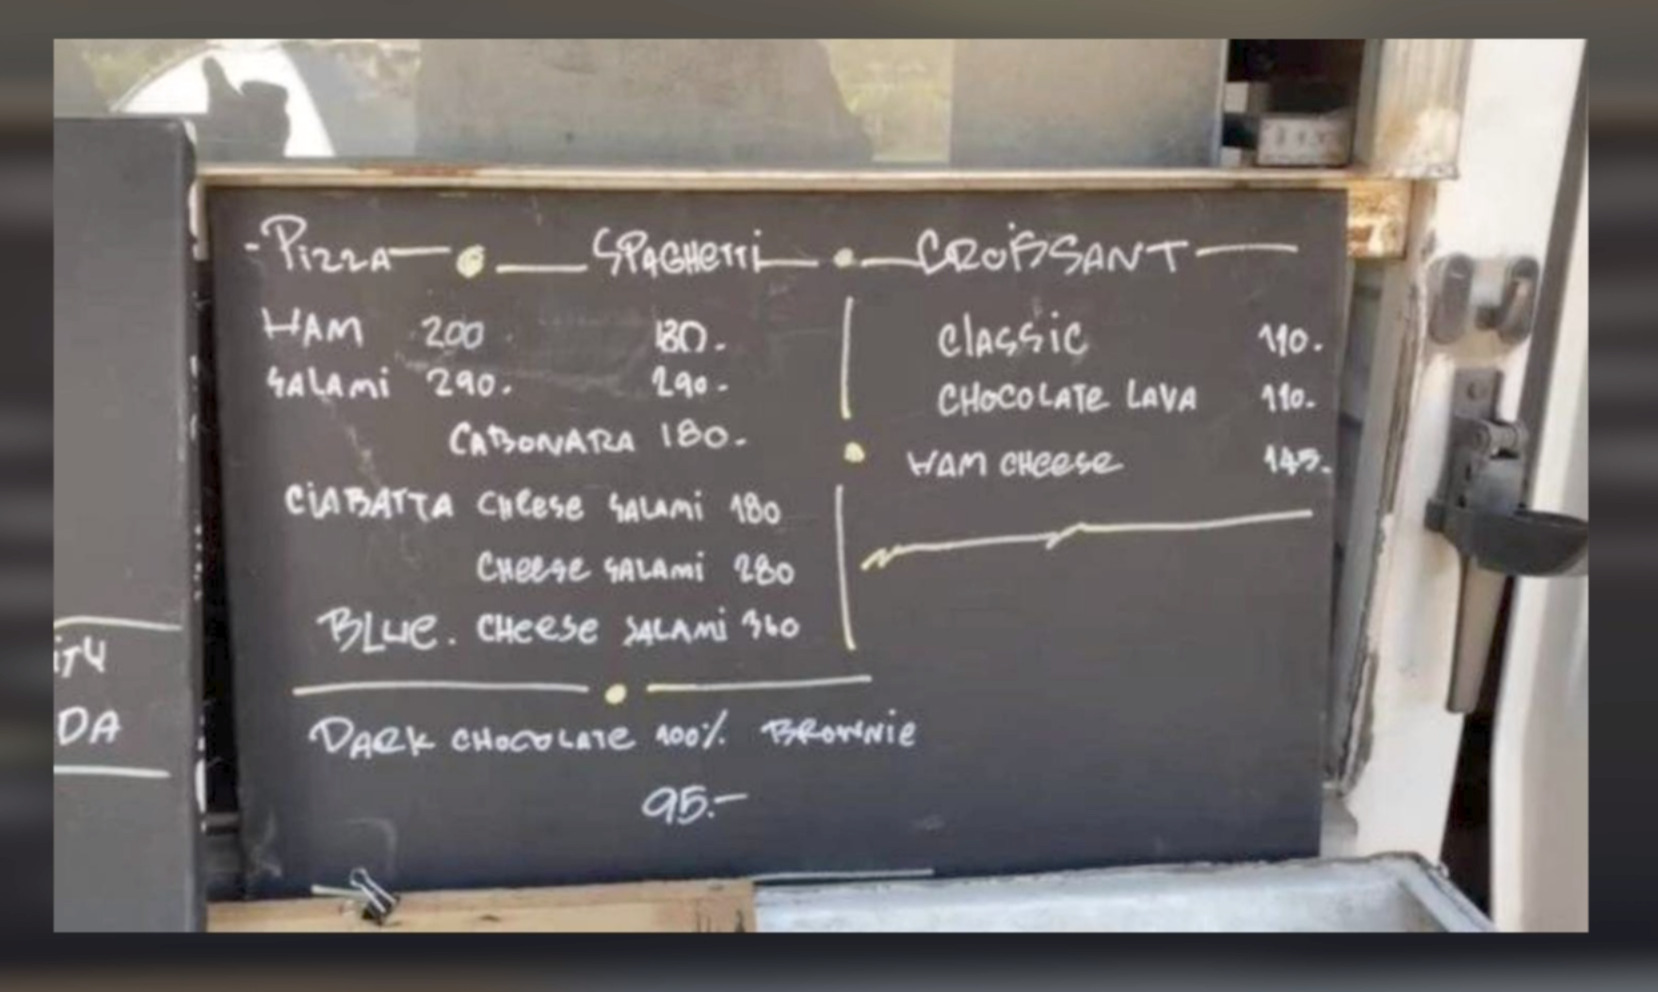 -Pizza — Spaghetti — Croissant
HAM 200 180.-
SALAMI 290.- 290.-
CABONARA 180.-
CIABATTA CHEESE SALAMI 180
CHEESE SALAMI 280
BLUE. CHEESE SALAMI 360
DARK CHOCOLATE 100% BROWNIE
95.-
CLASSIC 110.-
CHOCOLATE LAVA 110.-
HAM CHEESE 145.-
DA